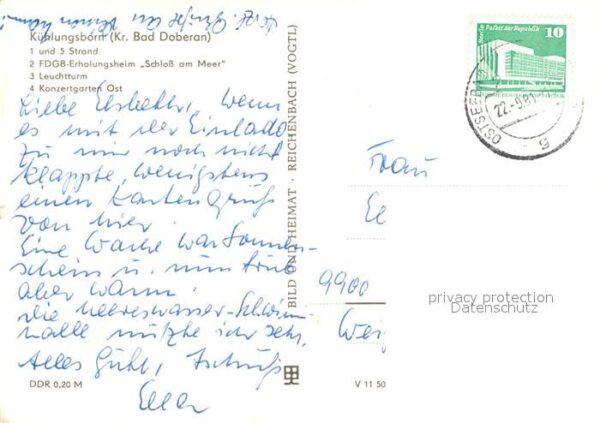 Herzl. Grüße an Deinen Mann!
Kühlungsborn (Kr. Bad Doberan)
1 und 5 Strand
2 FDGB-Erholungsheim „Schloß am Meer"
3 Leuchtturm
4 Konzertgarten Ost
Liebe Elsbeth, wenn
es mit der Einladg
zu mir noch nicht
klappte, wenigstens
einen Kartengruß
von hier.
Eine Woche war Sonnen-
schein u. nun trüb
aber warm.
Die Meereswasser-Schwimm-
halle nutzte ich sehr.
Alles Gute, Tschüß
DDR 0,20 M
BILD UND HEIMAT · REICHENBACH (VOGTL)
V 11 50
10
Palast der Republik
OSTSEEB
22.-9.81
Frau
9900
privacy protection
Datenschutz